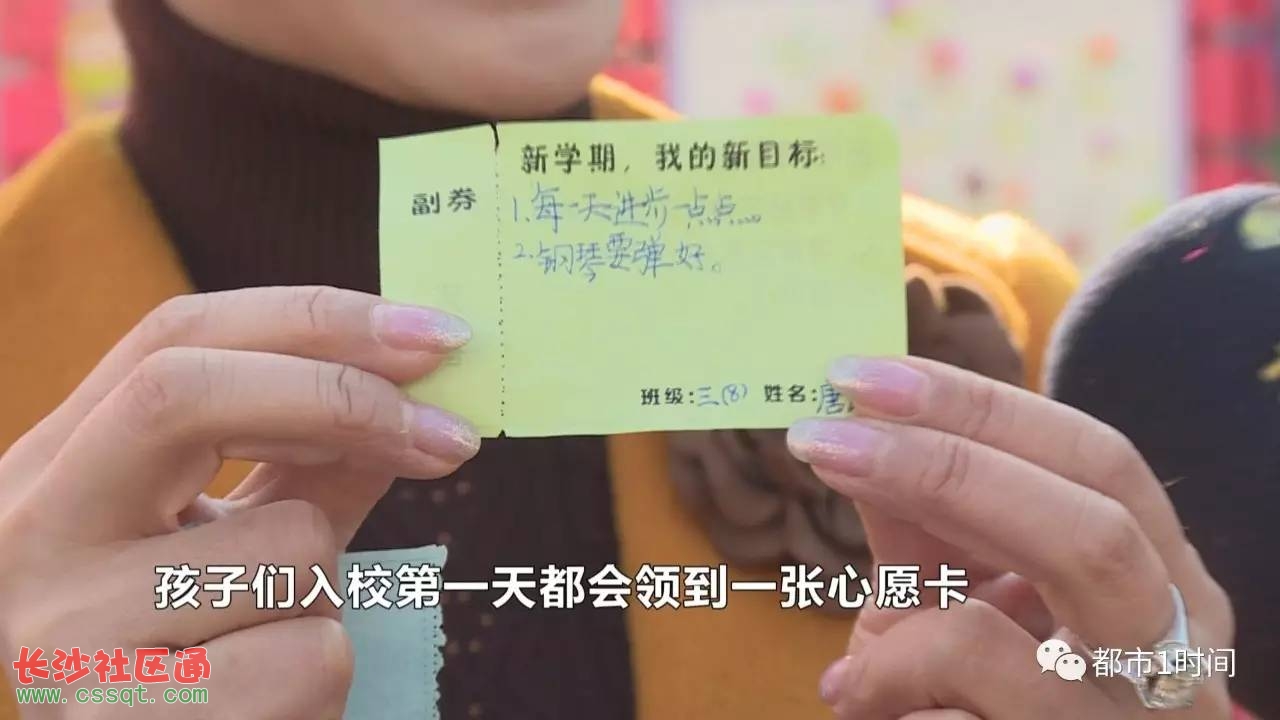 新学期，我的新目标:
副券
1.每一天进步一点点。
2.钢琴要弹好。
班级:三(8) 姓名:唐
孩子们入校第一天都会领到一张心愿卡
长沙社区通
www.cssqt.com
都市1时间